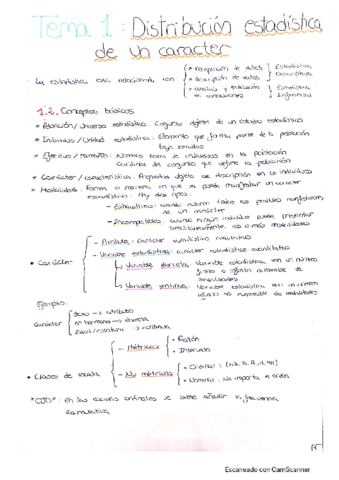 Tema 1: Distribución estadística
de un caracter
· La estadística está relacionada con:
* Recopilación de datos
* descripción de datos
Estadística
Descriptiva
* análisis y
de conclusiones
Estadística
Inferencial
1.2. Conceptos básicos
* Población / Universo estadístico: Conjunto objeto de un estudio estadístico
* Individuo / Unidad estadística: Elemento que forma parte de la población
bajo estudio
* Efectivo / Tamaño: Número total de individuos en la población
Cardinal del conjunto que define la población
* Carácter / característica: Propiedad objeto de descripción en los individuos
* Modalidad: Forma o manera en que se puede manifestar un carácter
estadístico. Hay dos tipos:
- Exhaustivas: cuando
de un carácter
- Incompatibles: cuando ningún individuo puede presentar
simultáneamente dos o más modalidades
* Carácter
- Atributo: Carácter estadístico cualitativo
- Variable estadística: carácter estadístico cuantitativo
→ Variable discreta: Variable estadística con un número
finito o infinito numerable de
modalidades.
→ Variable continua: Variable estadística con un número
infinito no numerable de modalidades
Ejemplos:
carácter
Sexo → atributo
nº hermanos → discreta
→ continua
* Clases de escala
- Métricas
* Razón
* Intervalo
- No métricas
* Ordinal:
* Nominal: No importa el orden
*OJO*: En las escalas ordinales se suele añadir la frecuencia
acumulativa.
1
Escaneado con CamScanner